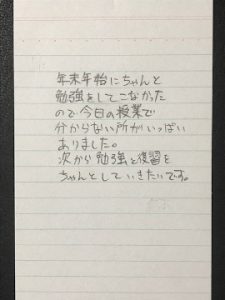 年末年始にちゃんと
勉強をしてこなかった
ので今日の授業で
分からない所がいっぱい
ありました。
次から勉強と復習を
ちゃんとしていきたいです。